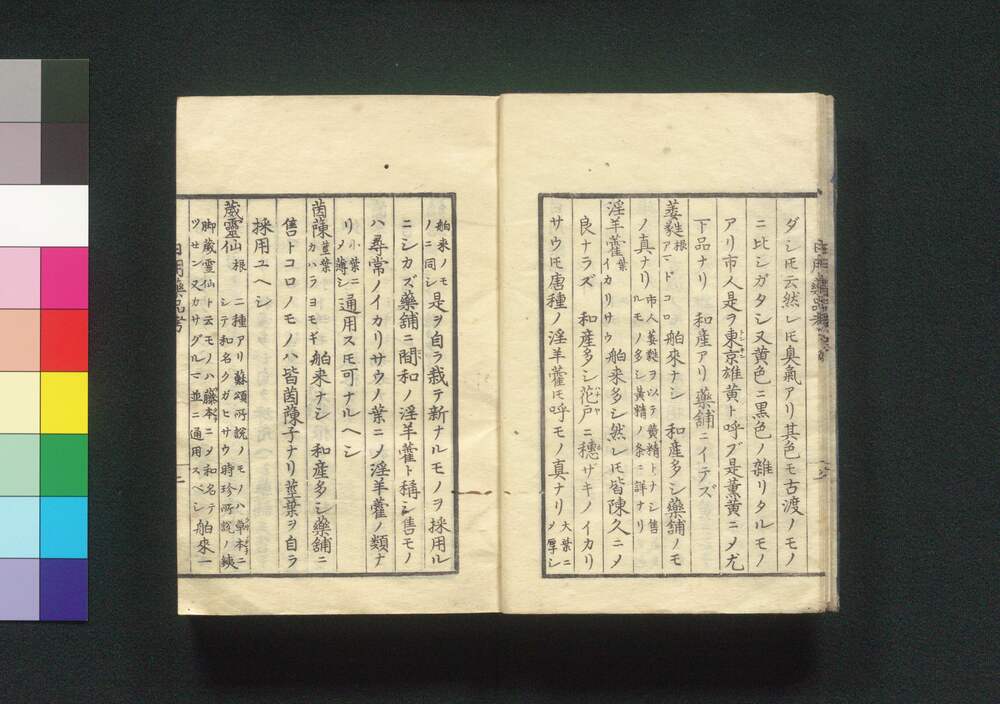 ダシ𪜈云然レ𪜈臭氣アリ其色モ古渡ノモノ
ニ比シガタシ又黄色ニ黒色ノ雜リタルモノ
アリ市人是ヲ東京雄黄ト呼ブ是薫黄ニ〆尤
下品ナリ 和産アリ藥舗ニイテズ
萎蕤根アマドコロ 舶來ナシ 和産多シ藥舗ノモ
ノ真ナリ市人萎蕤ヲ以テ黄精トナシ售ルモノ多シ黄精ノ条ニ詳ナリ
淫羊藿葉イカリサウ 舶来多シ然レ𪜈皆陳久ニ〆
良ナラズ 和産多シ花戸ニ穗ザキノイカリ
サウ𪜈唐種ノ淫羊藿𪜈呼モノ真ナリ大葉ニ〆厚シ
舶来ノモノニ同シ是ヲ自ラ栽テ新ナルモノヲ採用ル
ニシカズ藥舗ニ間和ノ淫羊藿ト稱シ售モノ
ハ尋常ノイカリサウノ葉ニ〆淫羊藿ノ類ナ
リ小葉ニ〆薄シ通用ス𪜈可ナルヘシ
茵蔯莖葉カハラヨモギ 舶来ナシ 和産多シ藥舗ニ
售トコロノモノハ皆茵蔯子ナリ莖葉ヲ自ラ
採用ユヘシ
葳靈仙根 二種アリ蘇頌所説ノモノハ草本ニシテ和名クガヒサウ時珍所説ノ鐵
脚葳霊仙ト云モノハ藤本ニ〆和名テツセン又カサグルマ並ニ通用スベシ 舶来一
日用藥品考